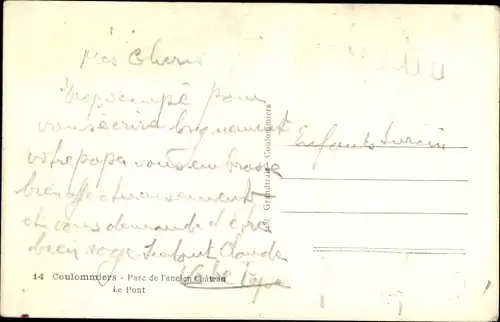 Mes Cheris
Trop occupé pour
vous écrire longuement
votre papa vous embrasse
bien affectueusement
et vous demande d'etre
bien sage surtout Claude
Votre Papa
Enfants
Coulommiers
14 Coulommiers - Parc de l'ancien Château
Le Pont